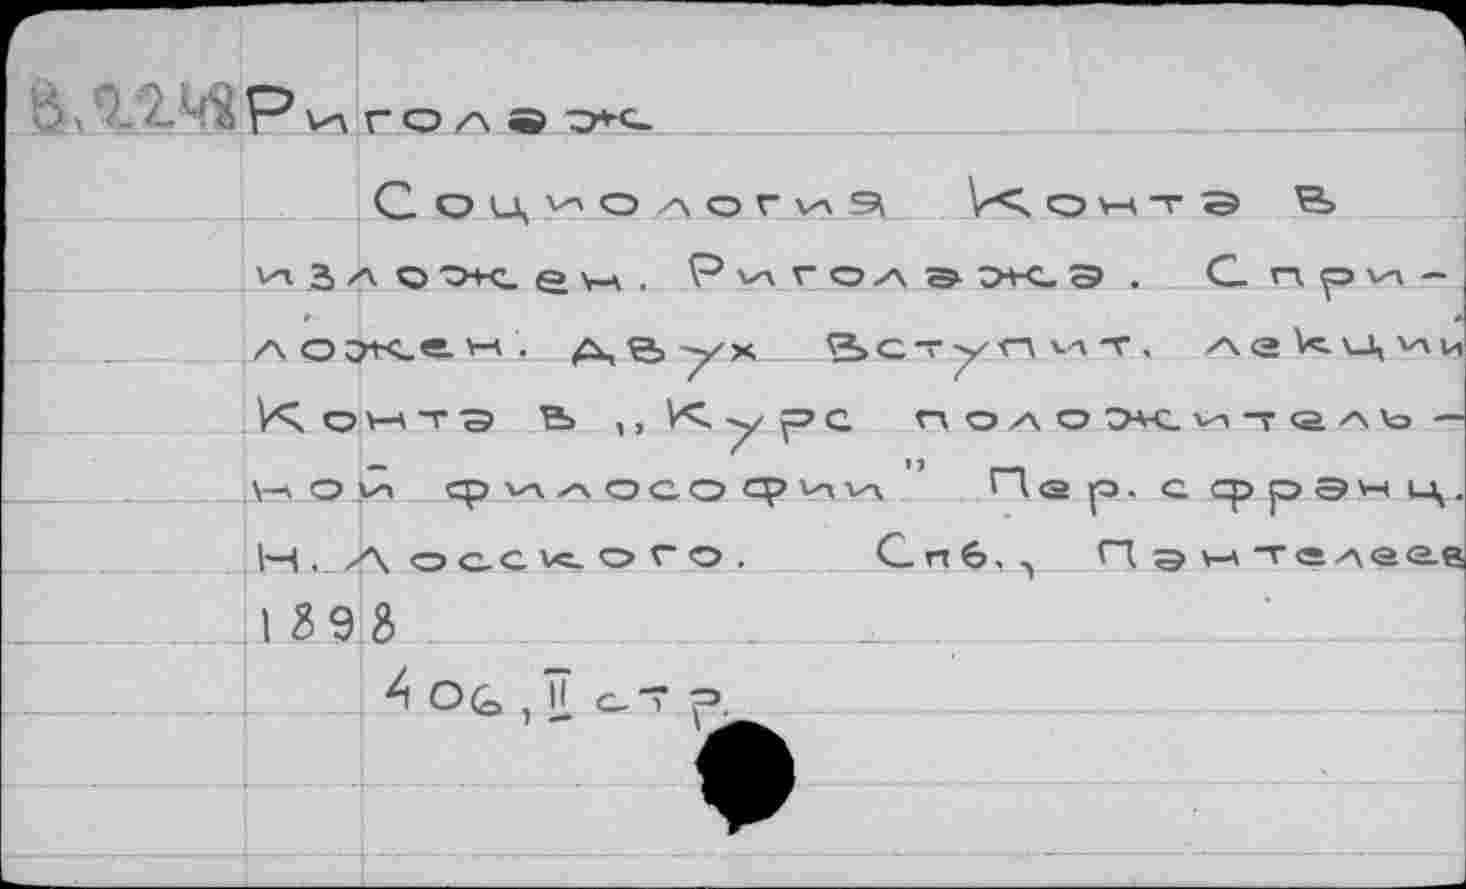 В.2248 Риголаж
Социология Конта в
изложен. Риголажа. С при-
ложен. двух вступит. лекций
Конта в „Курс положитель-
ной философии" Пер. с франц.
Н. Лосского. Спб., Пантелеев
1898
406, II стр.